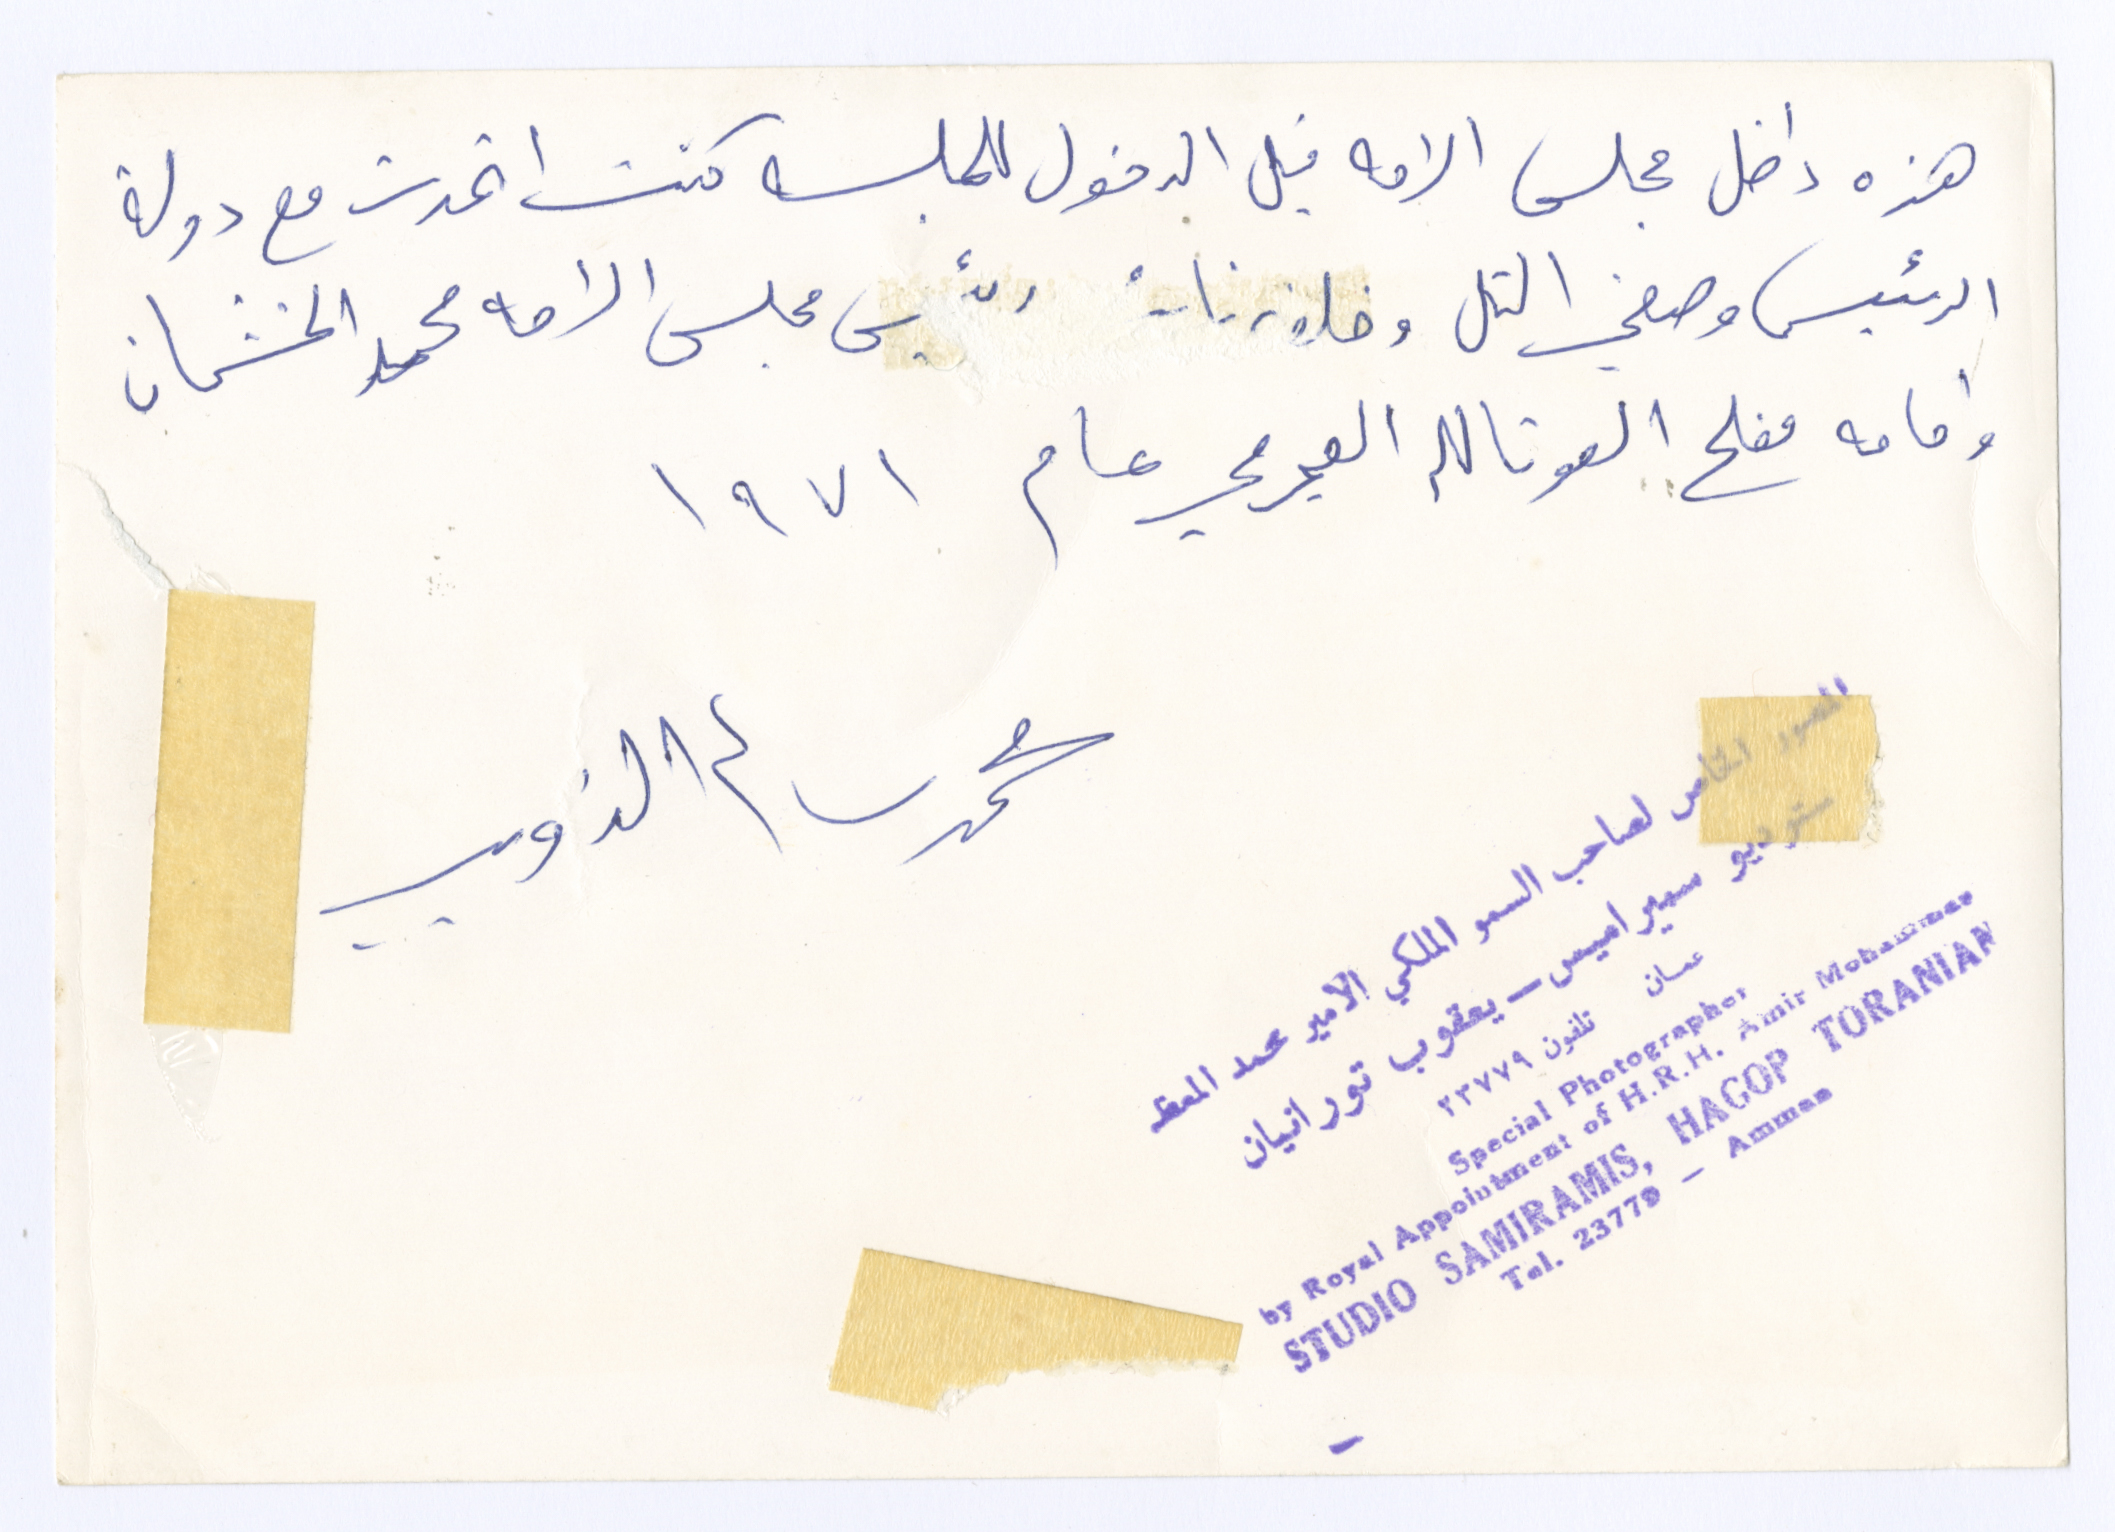 هذه داخل مجلس الامه قبل الدخول للجلسه كنت اتحدث مع دولة
الرئيس وصفي التل وخلفه نائب رئيس مجلس الامه محمد الخشمان
وامامه مفلح العودالله عام ١٩٧١
محمد سالم الذويب
المصور الخاص لصاحب السمو الملكي الامير محمد المعظم
ستوديو سميراميس - يعقوب تورانيان
عمان تلفون ٢٣٧٧٩
Special Photographer
by Royal Appointment of H.R.H. Amir Mohammed
STUDIO SAMIRAMIS, HAGOP TORANIAN
Tel. 23779 - Amman